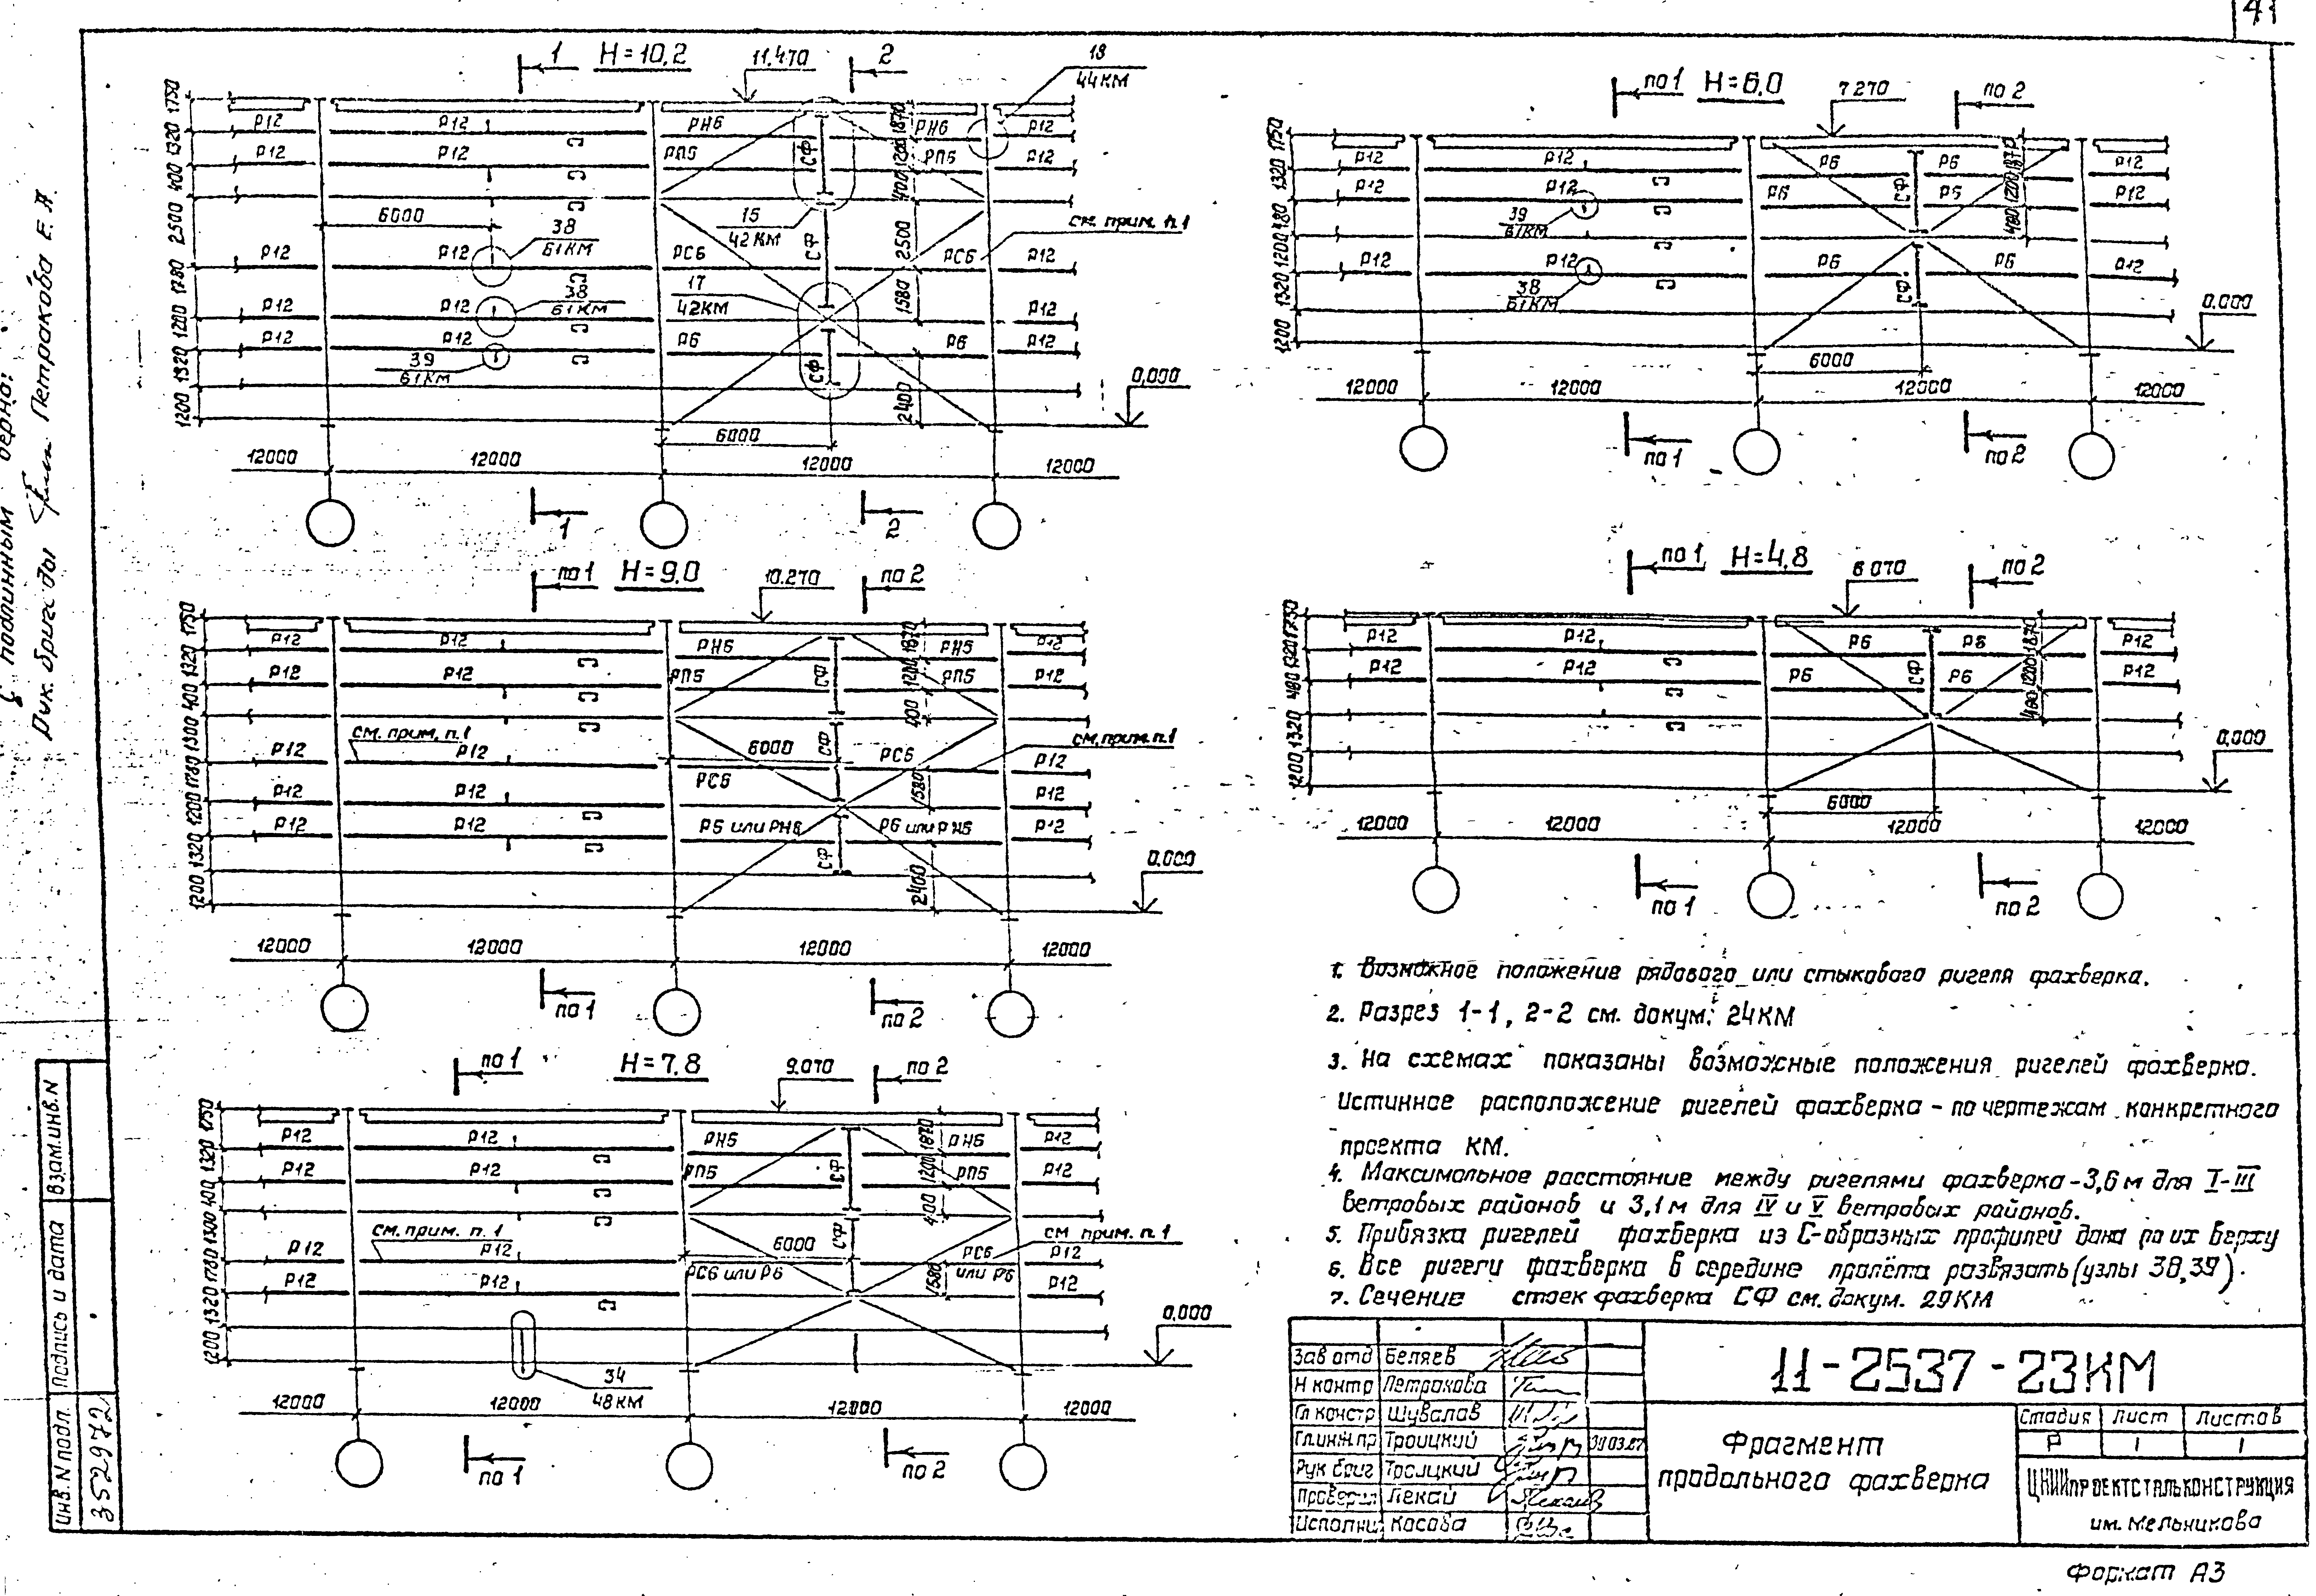 41
1 H=10,2 11.470 2 18
44КМ
1750 1320 400 2500 1780 1200 1320 1200
Р12 Р12 РН6 1870 РН6 Р12
Р12 Р12 РП6 СФ 1200 РП6 Р12
400
6000 15
42КМ
38
61КМ
СФ 2500 см. прим. п.1
Р12 Р12 РС6 РС6 Р12
38
61КМ
17
42КМ
1580
Р12 Р12 Р12
Р12 Р12 Р6 Р6 Р12
39
61КМ
СФ 2400 0,000
6000
12000 12000 12000 12000
1 2
по 1 H=9,0 10.270 по 2
1750 1320 400 1300 1780 1200 1320 1200
Р12 Р12 РН6 1870 РН6 Р12
Р12 Р12 РП6 СФ 1200 РП6 Р12
400
см. прим. п.1 6000 СФ см. прим. п.1
Р12 Р12 РС6 РС6 Р12
Р12 Р12 1580 Р12
Р12 Р12 Р6 или РН6 Р6 или РН6 Р12
СФ 2400 0,000
12000 12000 12000 12000
по 1 по 2
по 1 H=7,8 9.070 по 2
1750 1320 400 1300 1780 1320 1200
Р12 Р12 РН6 1870 РН6 Р12
Р12 Р12 РП6 СФ 1200 РП6 Р12
400
см. прим. п.1 6000 СФ см. прим. п.1
Р12 Р12 РС6 или Р6 РС6 или Р6 Р12
Р12 Р12 1580 Р12
0,000
34
48КМ
12000 12000 12000 12000
по 1 по 2
по 1 H=6,0 7.270 по 2
1750 1320 480 1200 1320 1200
Р12 Р12 Р6 Р6 1870 Р12
Р12 Р12 Р6 СФ Р6 1200 Р12
39
61КМ
480
Р12 Р12 Р6 Р6 Р12
38
61КМ
СФ 0,000
6000
12000 12000 12000 12000
по 1 по 2
по 1 H=4,8 6.070 по 2
1750 1320 480 1320 1200
Р12 Р12 Р6 Р6 1870 Р12
Р12 Р12 Р6 СФ Р6 1200 Р12
480
0,000
6000
12000 12000 12000 12000
по 1 по 2
1. Возможное положение рядового или стыкового ригеля фахверка.
2. Разрез 1-1, 2-2 см. докум. 24КМ
3. На схемах показаны возможные положения ригелей фахверка.
Истинное расположение ригелей фахверка – по чертежам конкретного
проекта КМ.
4. Максимальное расстояние между ригелями фахверка – 3,6 м для I-III
ветровых районов и 3,1м для IV и V ветровых районов.
5. Привязка ригелей фахверка из С-образных профилей дана по их верху
6. Все ригели фахверка в середине пролёта развязать (узлы 38,39).
7. Сечение стоек фахверка СФ см. докум. 29КМ
Зав отд Беляев
Н контр Петракова
Гл констр Шувалов
Гл.инж.пр Троицкий 30.03.87
Рук бриг Троицкий
Проверил Лекай
Исполни Косова
11-2537-23КМ
Фрагмент
продольного фахверка
Стадия Лист Листов
Р 1 1
ЦНИИПРОЕКТСТАЛЬКОНСТРУКЦИЯ
им. Мельникова
Формат А3
С подлинным верно:
Рук. бригады Петракова Е. А.
Взам.инв.N
Подпись и дата
Инв.N подл.
3529721